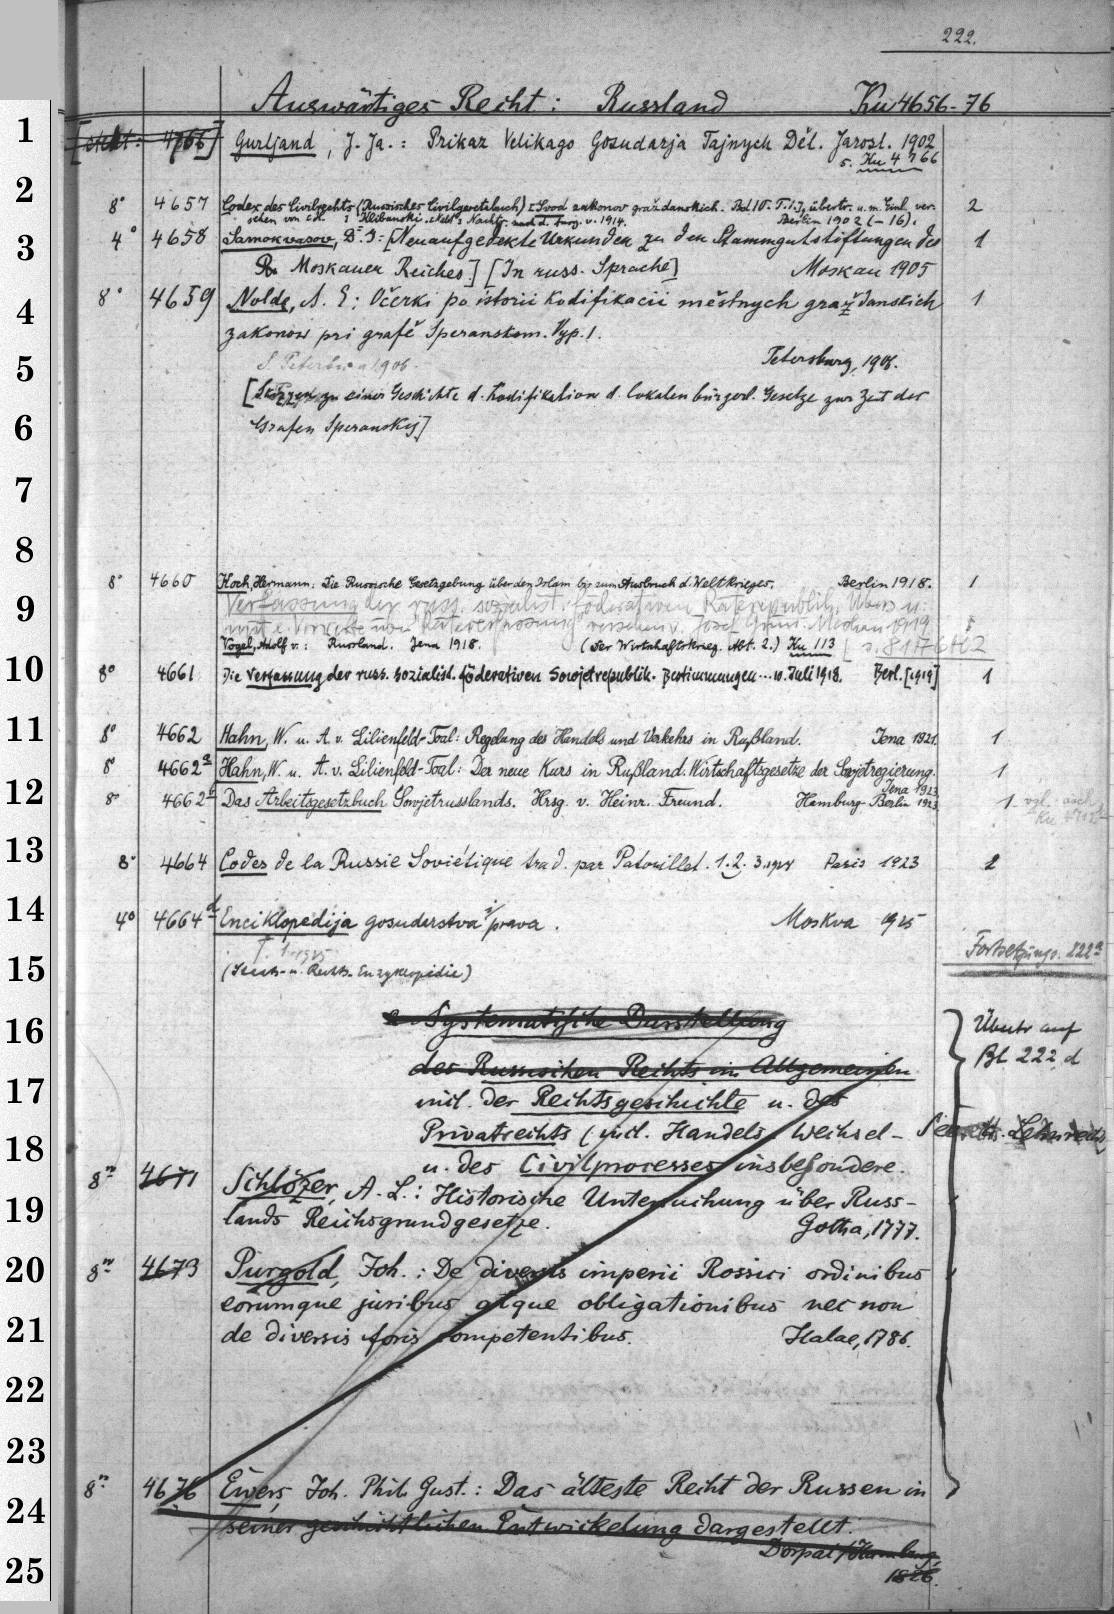 222.
Auswärtiges Recht: Russland Ku 4656-76
1
4766] Gurljand, J. Ja.: Prikaz Velikago Gosudarja Tajnych Děl. Jarosl. 1902
s. Ku 4766
2
8° 4657 Codex des Civilrechts (Russisches Civilgesetzbuch) = Svod zakonov graždanskich. Bd. 10. T. 1.), übertr. u. m. Einl. ver-
sehen von Klibanski. Nachtr. Berlin 1902 (-16). 2
3
4° 4658 Samokvasov, D. J.: [Neuaufgedekte Urkunden zu den Stammgutstiftungen des 1
Moskauer Reiches] [In russ. Sprache] Moskau 1905
4
8° 4659 Nolde, A. E.: Očerki po istorii kodifikacii městnych graždanskich 1
zakonow pri grafě Speranskom. Vyp. 1.
5
Petersburg, 1906.
[Skizzen zu einer Geschichte d. Kodifikation d. lokalen bürgerl. Gesetze zur Zeit des
6
Grafen Speranskij]
7
8
8° 4660 Koch, Hermann: Die Russische Gesetzgebung über den Islam bis zum Ausbruch d. Weltkrieges. Berlin 1918. 1
9
Verfassung der russ. sozialist. föderativen Räterepublik. Übers. u.
mit e. Vorrede versehen v. Moskau 1919
Vogel, Adolf v.: Russland. Jena 1918. (Der Wirtschaftskrieg. Abt. 2.) Ku 113
10
8° 4661 Die Verfassung der russ. sozialist. föderativen Sowjetrepublik. Bestimmungen ... 10. Juli 1918. Berl. [1919] 1
11
8° 4662 Hahn, W. u. A. v. Lilienfeld-Toal: Regelung des Handels und Verkehrs in Rußland. Jena 1921. 1
8° 4662a Hahn, W. u. A. v. Lilienfeld-Toal: Der neue Kurs in Rußland. Wirtschaftsgesetze der Sowjetregierung. 1
Jena 1923
12
8° 4662b Das Arbeitsgesetzbuch Sowjetrusslands. Hrsg. v. Heinr. Freund. Hamburg-Berlin 1923 1 vgl. auch
13
8° 4664 Codes de la Russie Soviétique trad. par Patouillet. 1. 2. 3. 1924 Paris 1923 2
14
4° 4664d Enciklopedija gosudarstva i prava. Moskva 1925
Fortsetzung s. 222a
15
(Staats- u. Rechts-Enzyklopädie)
16
Systematische Darstellung
Übertr auf
Bl 222 d
des Russischen Rechts im Allgemeinen
17
incl. der Rechtsgeschichte u. des
Privatrechts (incl. Handels, Wechsel-
18
u. des Civilprocesses insbesondere.
8° 4671 Schlözer, A. L.: Historische Untersuchung über Russ-
19
lands Reichsgrundgesetze. Gotha, 1777.
20
8° 4673 Purgold, Joh.: De diversis imperii Rossici ordinibus
eorumque juribus atque obligationibus nec non
21
de diversis foris competentibus. Halae, 1786.
22
23
8° 4676 Ewers, Joh. Phil. Gust.: Das älteste Recht der Russen in
24
seiner geschichtlichen Entwickelung dargestellt.
Dorpat/Hamburg,
25
1826.